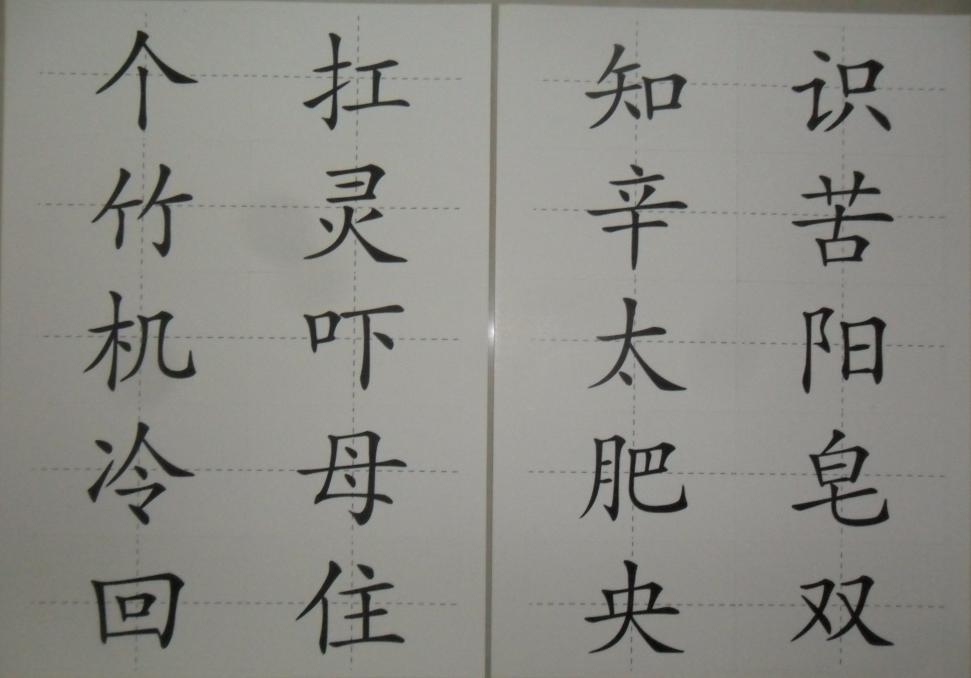 个 扛
竹 灵
机 吓
冷 母
回 住
知 识
辛 苦
太 阳
肥 皂
央 双